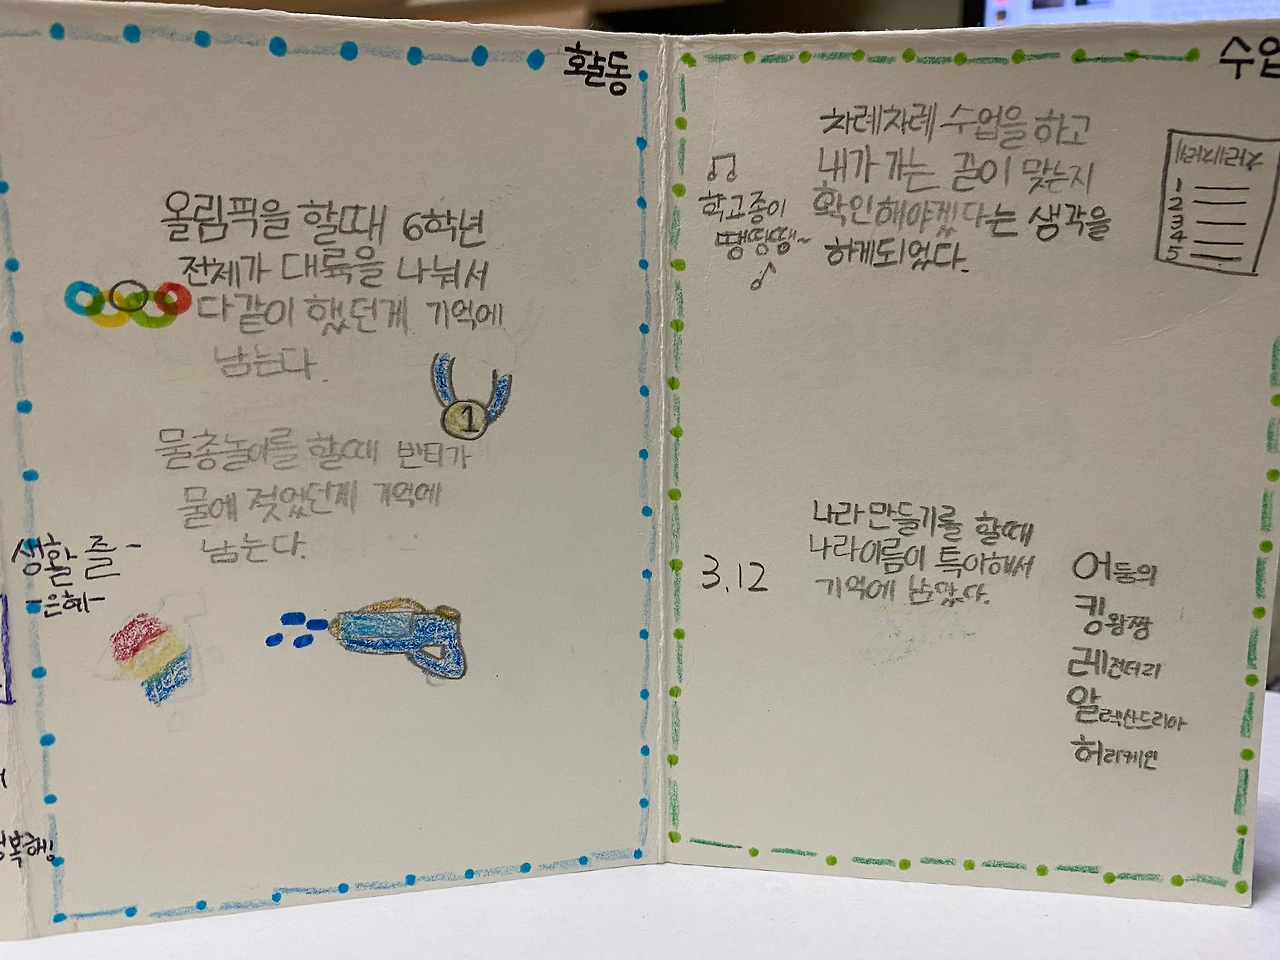 활동
올림픽을 할때 6학년
전체가 대륙을 나눠서
다같이 했던게 기억에
남는다
1
물총놀이를 할때 반티가
물에 젖었던게 기억에
남는다.
생활 즐-
-은혜-
수업
차례차례 수업을 하고
내가 가는 길이 맞는지
확인해야겠다는 생각을
하게되었다.
학교종이
땡땡땡~
차례차례
1
2
3
4
5
3.12
나라 만들기를 할때
나라이름이 특이해서
기억에 남았다.
어둠의
킹왕짱
레전더리
알렉산드리아
허리케인